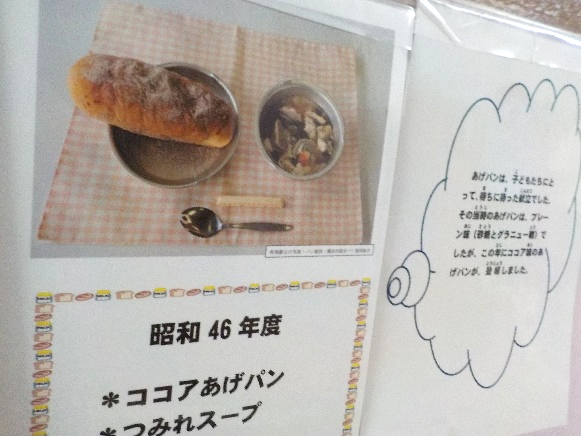 昭和 46 年度
*ココアあげパン
*つみれスープ
あげパンは、子どもたちにと
って、待ちに待った献立でした。
その当時のあげパンは、プレー
ン味（砂糖とグラニュー糖）で
したが、この年にココア味のあ
げパンが、登場しました。